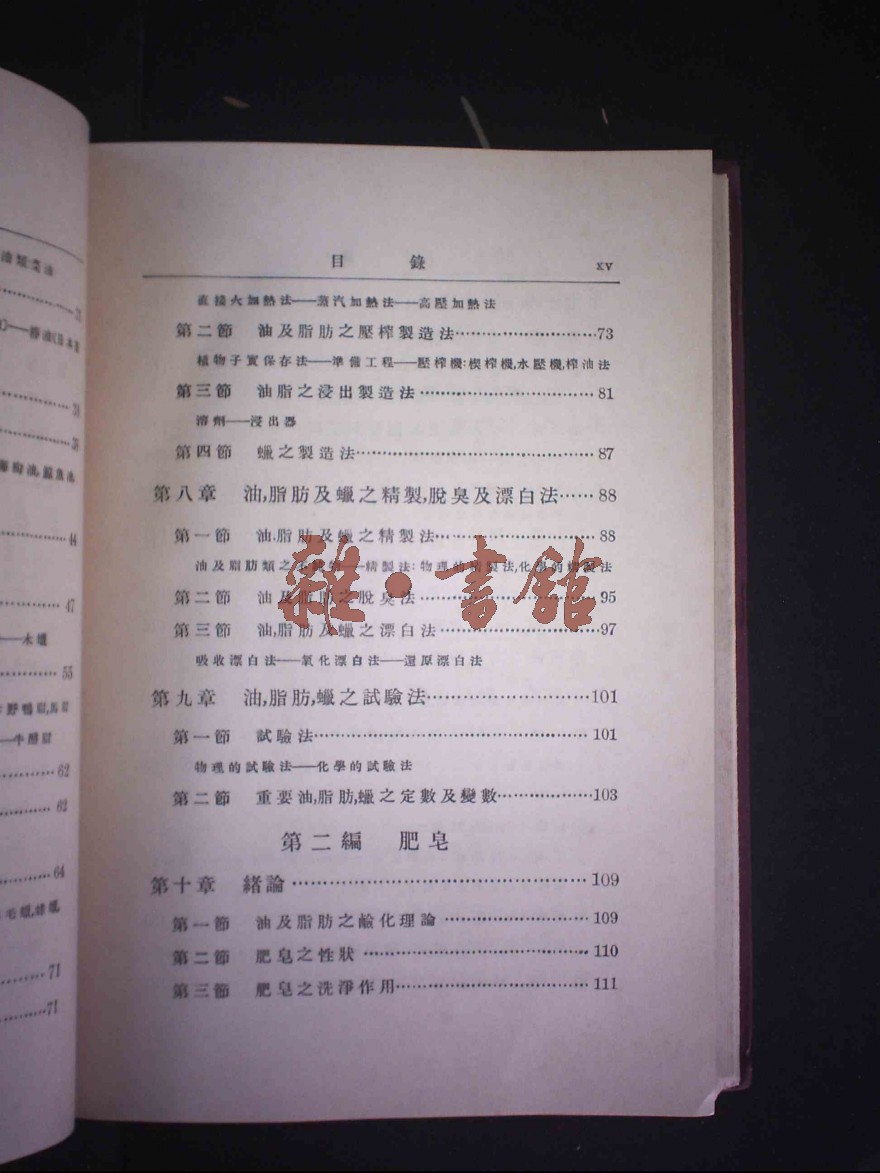 油類:菜油
21
38
38
44
47
——木蠟
55
62
——牛酪脂
62
64
71
71
目 錄 xv
直接火加熱法——蒸汽加熱法——高壓加熱法
第二節 油及脂肪之壓榨製造法……73
植物子實保存法——準備工程——壓榨機:楔榨機,水壓機,榨油法
第三節 油脂之浸出製造法……81
溶劑——浸出器
第四節 蠟之製造法……87
第八章 油,脂肪及蠟之精製,脫臭及漂白法……88
第一節 油,脂肪及蠟之精製法……88
油及脂肪類之不純物——精製法:物理的精製法,化學的精製法
第二節 油及脂肪之脫臭法……95
第三節 油,脂肪及蠟之漂白法……97
吸收漂白法——氧化漂白法——還原漂白法
第九章 油,脂肪,蠟之試驗法……101
第一節 試驗法……101
物理的試驗法——化學的試驗法
第二節 重要油,脂肪,蠟之定數及變數……103
第二編 肥皂
第十章 緒論……109
第一節 油及脂肪之鹼化理論……109
第二節 肥皂之性狀……110
第三節 肥皂之洗淨作用……111
雜·書館